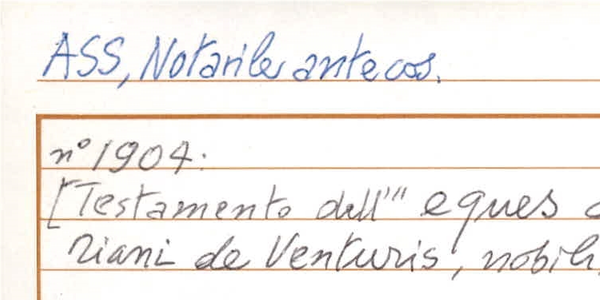 ASS, Notarile antecos.
n° 1904.
[Testamento dell'" eques
de Venturis, nobili